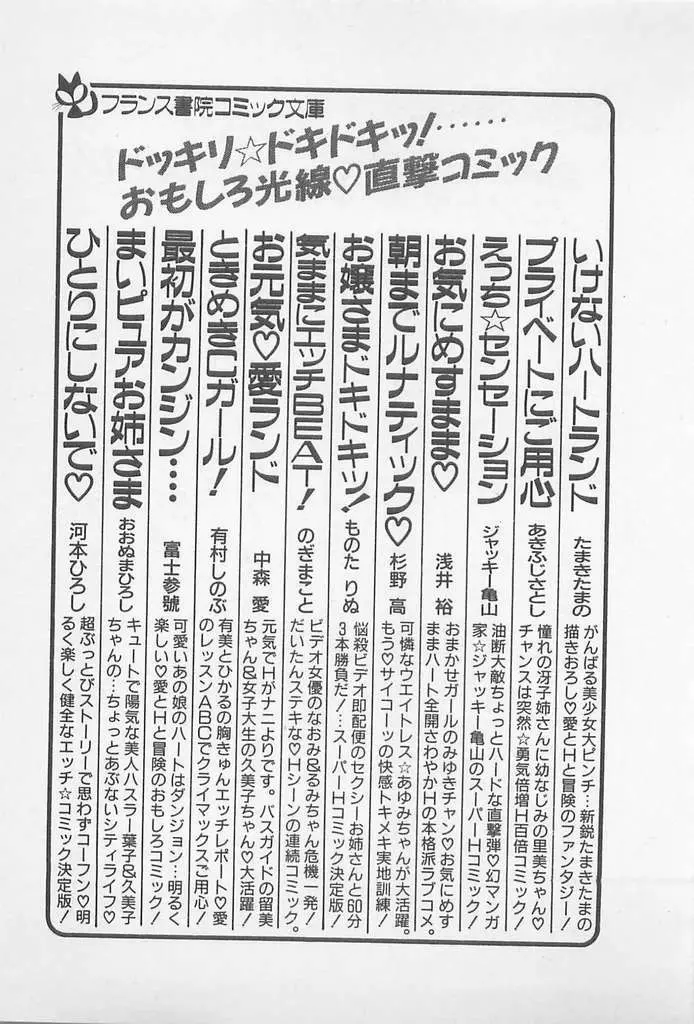 フランス書院コミック文庫
ドッキリ☆ドキドキッ!……
おもしろ光線♡直撃コミック
いけないハートランド
たまきたまの
がんばる美少女大ピンチ…新鋭たまきたまの
描きおろし♡愛とHと冒険のファンタジー!
プライベートにご用心
あきふじさとし
憧れの冴子姉さんに幼なじみの里美ちゃん♡
チャンスは突然☆勇気倍増H百倍コミック!
えっち☆センセーション
ジャッキー亀山
油断大敵ちょっとハードな直撃弾♡幻マンガ
家☆ジャッキー亀山のスーパーHコミック!
お気にめすまま♡
浅井 裕
おまかせガールのみゆきチャン♡お気にめす
ままハート全開さわやかHの本格派ラブコメ。
朝までルナティック♡
杉野 高
可憐なウエイトレス☆あゆみちゃんが大活躍。
もう♡サイコーッの快感トキメキ実地訓練!
お嬢さまドキドキッ!
ものた りぬ
悩殺ビデオ即配便のセクシーお姉さんと60分
3本勝負だ!…スーパーHコミック決定版!
気ままにエッチBEAT!
のぎまこと
ビデオ女優のなおみ&るみちゃん危機一発!
だいたんステキな♡Hシーンの連続コミック。
お元気♡愛ランド
中森 愛
元気でHがナニよりです。バスガイドの留美
ちゃん&女子大生の久美子ちゃん♡大活躍!
ときめきCガール!
有村しのぶ
有美とひかるの胸きゅんエッチレポート♡愛
のレッスンABCでクライマックスご用心!
最初がカンジン…
富士参號
可愛いあの娘のハートはダンジョン…明るく
楽しい♡愛とHと冒険のおもしろコミック!
まいピュアお姉さま
おおぬまひろし
キュートで陽気な美人ハスラー葉子&久美子
ちゃんの…ちょっとあぶないシティライフ♡
ひとりにしないで♡
河本ひろし
超ぶっとびストーリーで思わずコーフン♡明
るく楽しく健全なエッチ☆コミック決定版!